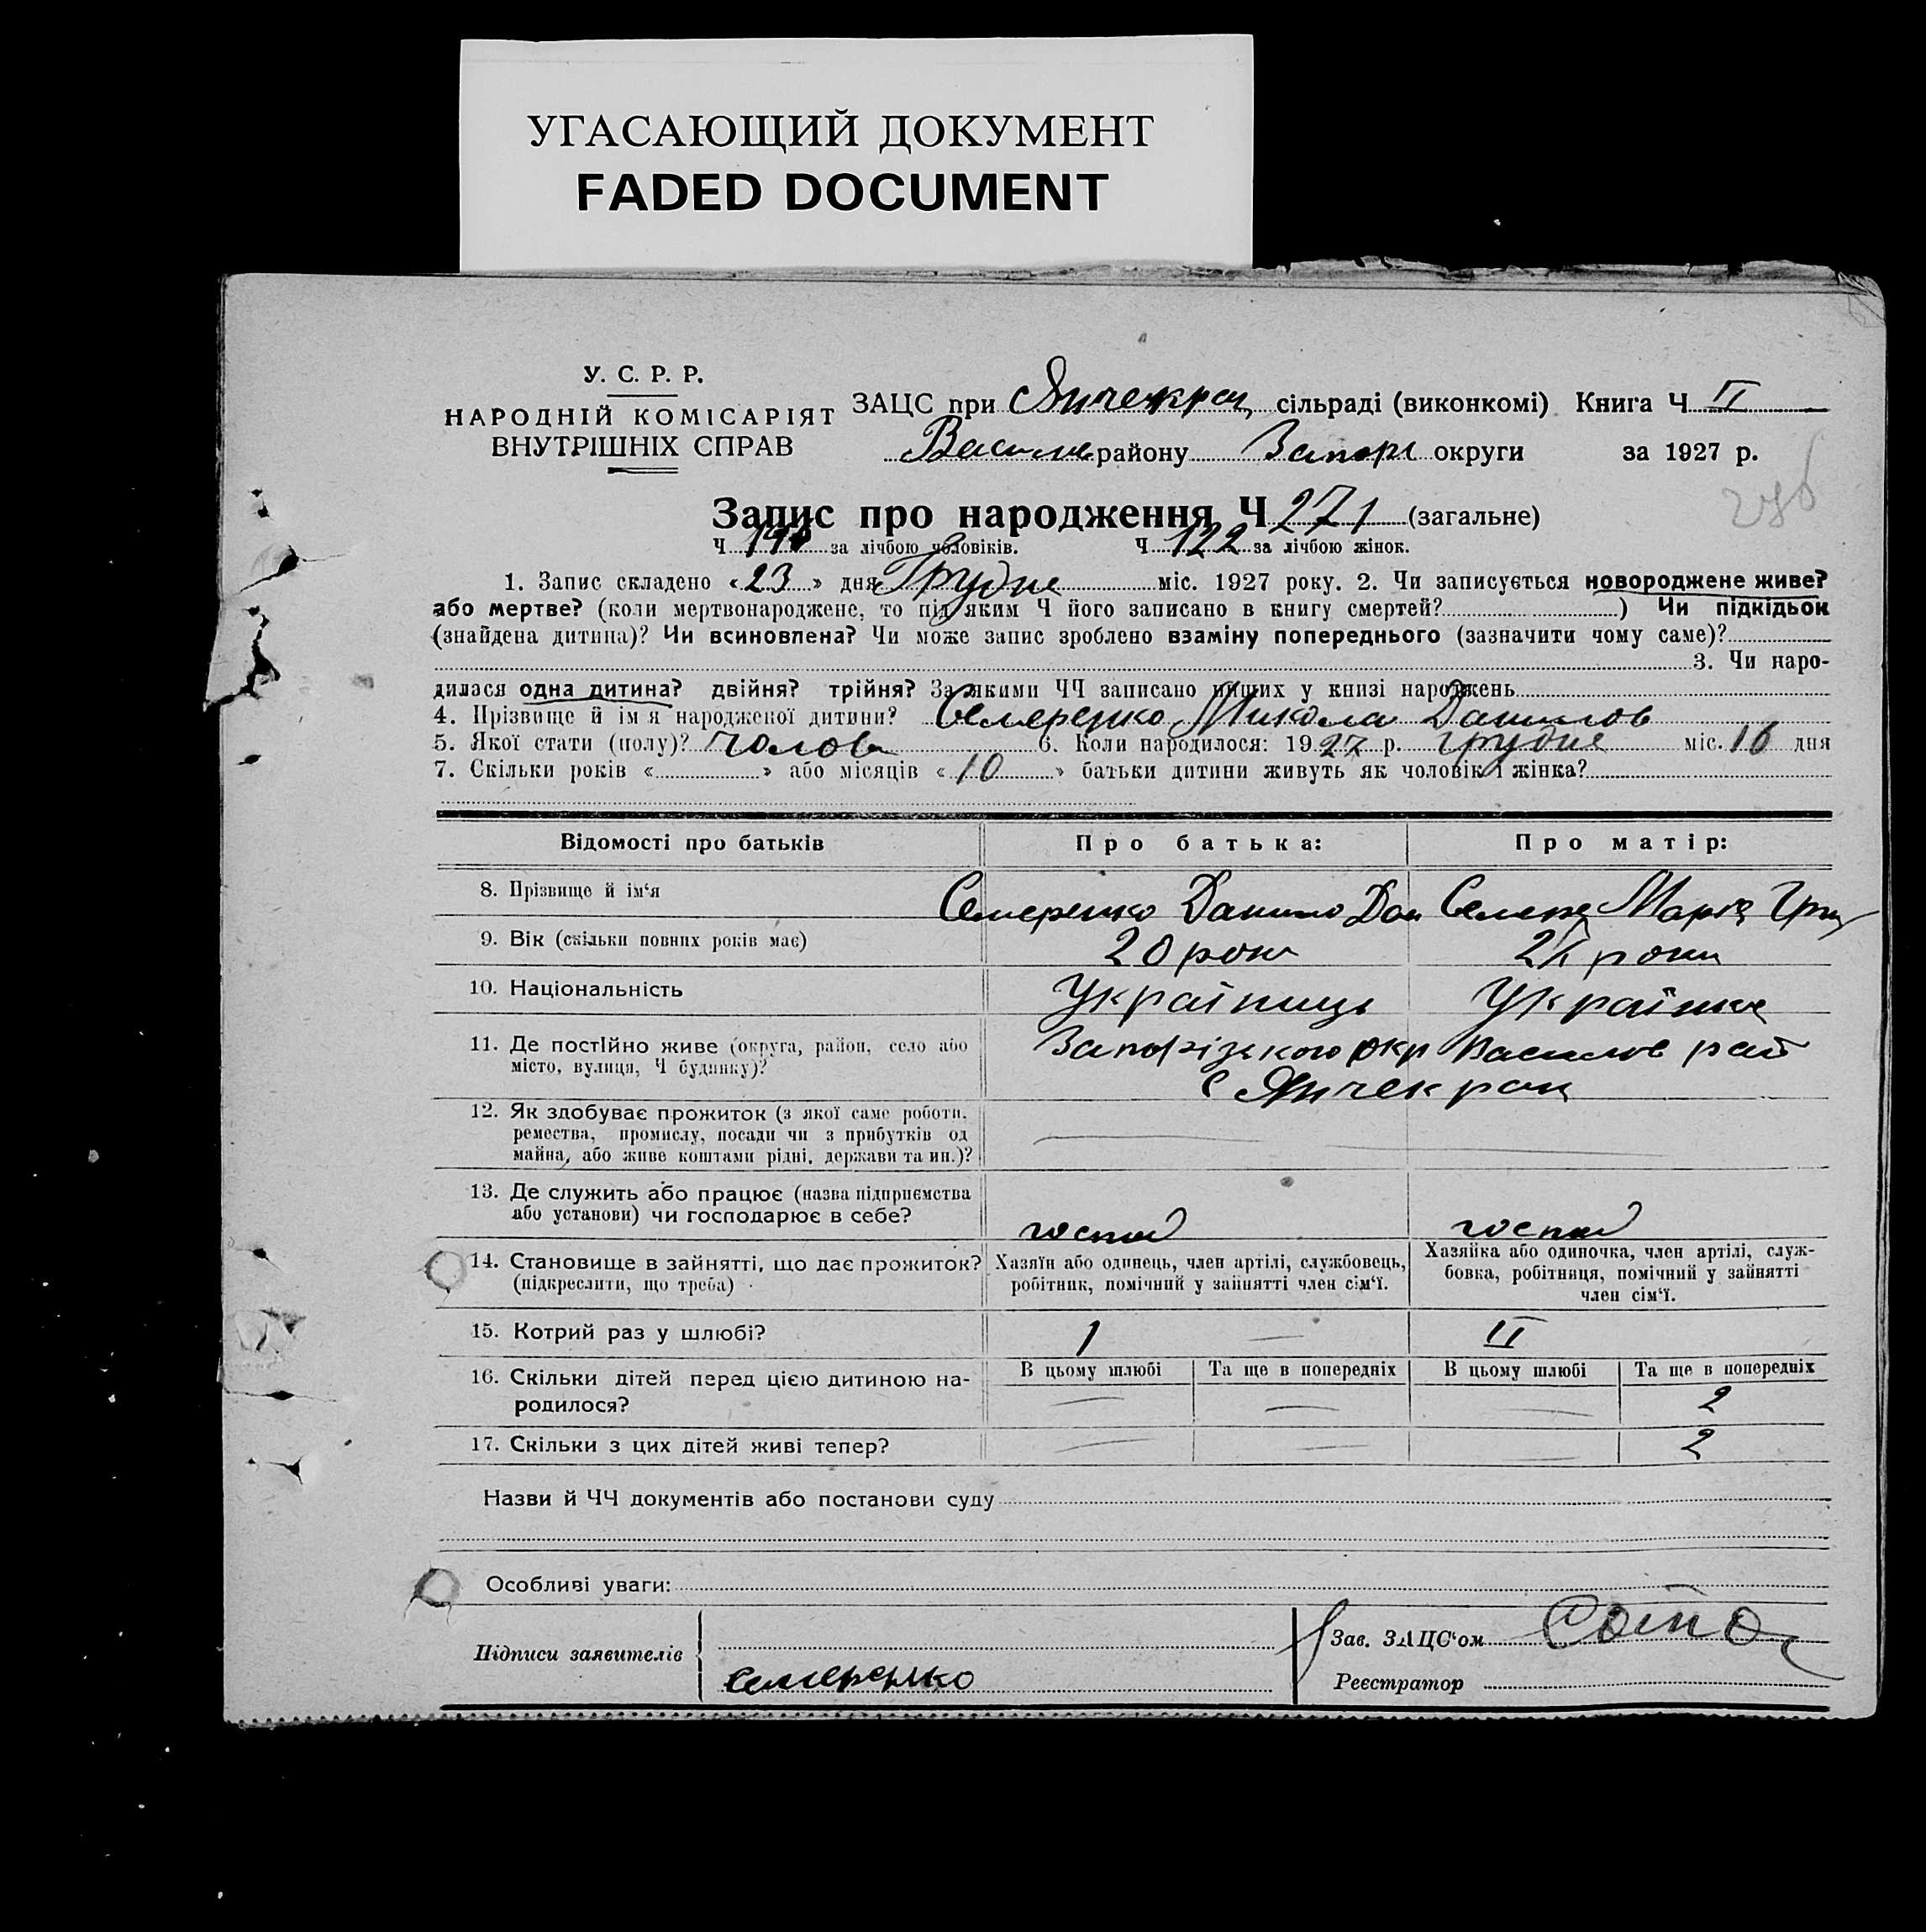 УГАСАЮЩИЙ ДОКУМЕНТ
FADED DOCUMENT
У. С. Р. Р.
НАРОДНІЙ КОМІСАРІЯТ
ВНУТРІШНІХ СПРАВ
ЗАЦС при Янчекрац сільраді (виконкомі) Книга Ч II
Васили району Запорі округи за 1927 р.
Запис про народження Ч 271 (загальне)
Ч за лічбою чоловіків. Ч 122 за лічбою жінок.
1. Запис складено «23» дня Грудня міс. 1927 року. 2. Чи записується новороджене живе?
або мертве? (коли мертвонароджене, то під яким Ч його записано в книгу смертей? ) Чи підкідьок
(знайдена дитина)? Чи всиновлена? Чи може запис зроблено взаміну попереднього (зазначити чому саме)?
3. Чи наро-
дилася одна дитина? двійня? трійня? За якими ЧЧ записано инших у книзі народжень
4. Прізвище й ім'я народженої дитини? Семеренко Микола Данилов
5. Якої стати (полу)? Чолов 6. Коли народилося: 1927 р. грудня міс. 16 дня
7. Скільки років « » або місяців «10» батьки дитини живуть як чоловік і жінка?
Відомості про батьків Про батька: Про матір:
8. Прізвище й ім'я Семеренко Данило Дан Семере Марія Гри
9. Вік (скільки повних років має) 20 роки роки
10. Національність Україниць Українка
11. Де постІйно живе (округа, район, село або місто, вулиця, Ч будинку)? Запорізького окр Василов рай
с Янчекрац
12. Як здобуває прожиток (з якої саме роботи,
ремества, промислу, посади чи з прибутків од
майна, або живе коштами рідні, держави та ин.)?
13. Де служить або працює (назва підприємства
або установи) чи господарює в себе? господ господ
14. Становище в зайнятті, що дає прожиток?
(підкреслити, що треба)
Хазяїн або одинець, член артілі, службовець,
робітник, помічний у зайнятті член сім'ї.
Хазяйка або одиночка, член артілі, служ-
бовка, робітниця, помічний у зайнятті
член сім'ї.
15. Котрий раз у шлюбі? 1 — II
16. Скільки дітей перед цією дитиною на-
родилося?
В цьому шлюбі Та ще в попередніх В цьому шлюбі Та ще в попередніх
— — — 2
17. Скільки з цих дітей живі тепер? — — — 2
Назви й ЧЧ документів або постанови суду
Особливі уваги:
Підписи заявителів
Семеренко
Зав. ЗАЦС'ом
Реєстратор